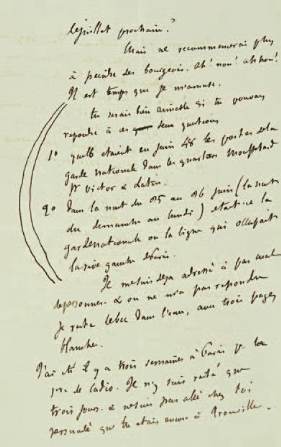 le juillet prochain ?
Mais ne recommencerai plus
à peindre des bourgeois. ah ! non ! ah non !
Il est temps que je m'amuse.
tu serais bien aimable si tu pouvais
répondre à ces deux questions
1° quels étaient en juin 48 les postes de la
garde nationale dans les quartiers Mouffetard
St Victor & Latin.
2° Dans la nuit du 25 au 26 juin (la nuit
du dimanche au lundi) était-ce la
garde nationale ou la ligne qui occupait
la rive gauche Paris.
Je me suis déjà adressé à pas mal
de personnes & on ne m'a pas répondu
je reste le bec dans l'eau, avec trois pages
blanches.
J'ai été il y a trois semaines à Paris pr la
1re de Cadio. Je n'y suis resté que
trois jours & ne suis pas allé chez toi
persuadé que tu étais encore à Trouville.